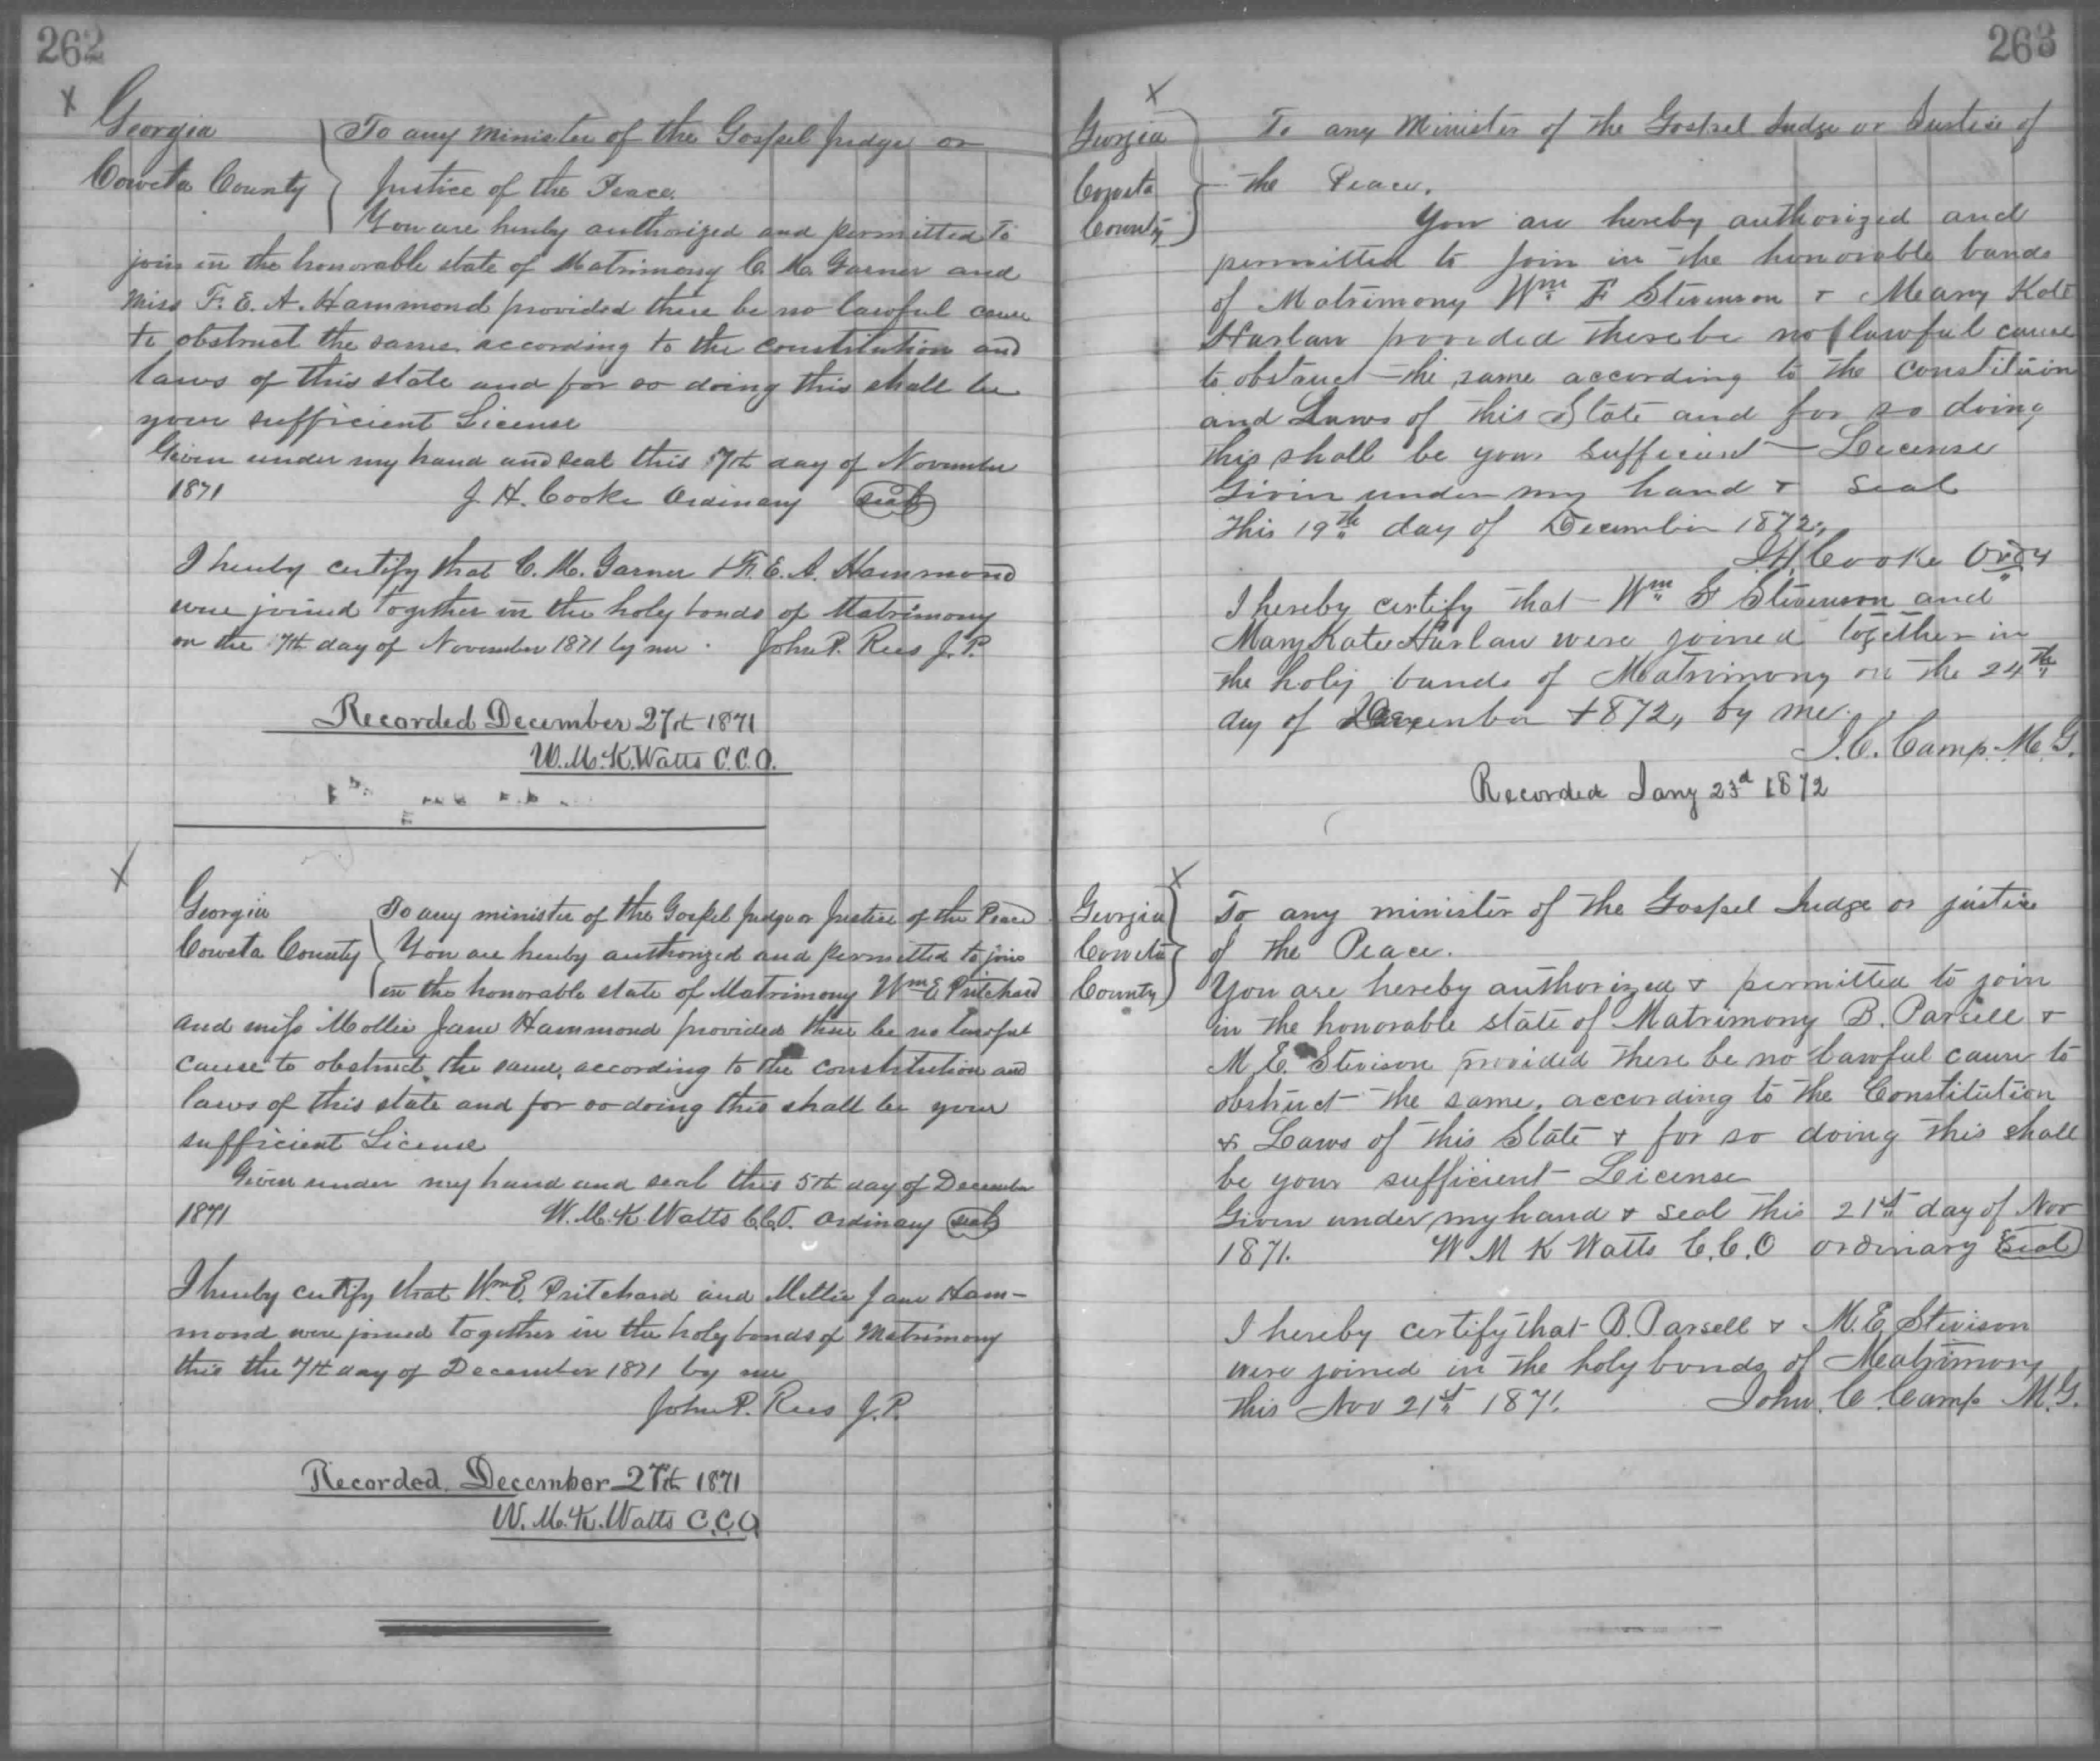 262
X
Georgia
Coweta County
To any minister of the Gospel Judge or
Justice of the Peace.
You are hereby authorized and permitted to
join in the honorable state of Matrimony C. M. Garner and
Miss F. E. A. Hammond provided there be no lawful cause
to obstruct the same according to the constitution and
laws of this state and for so doing this shall be
your sufficient License
Given under my hand and seal this 7th day of November
1871 J. H. Cooke Ordinary seal
I hereby certify that C. M. Garner & F. E. A. Hammond
were joined together in the holy bonds of Matrimony
on the 7th day of November 1871 by me. John P. Rees J. P.
Recorded December 27th 1871
W. M. K. Watts C. C. O.
X
Georgia
Coweta County
To any minister of the Gospel Judge or Justice of the Peace
You are hereby authorized and permitted to join
in the honorable state of Matrimony Wm E Pritchard
and miss Mollie Jane Hammond provided there be no lawful
cause to obstruct the same, according to the constitution and
laws of this state and for so doing this shall be your
sufficient License
Given under my hand and seal this 5th day of December
1871 W. M. K. Watts C.C.O. Ordinary seal
I hereby certify that Wm E. Pritchard and Mollie Jane Ham-
mond were joined together in the holy bonds of Matrimony
this the 7th day of December 1871 by me
John P. Rees J. P.
Recorded December 27th 1871
W. M. K. Watts C.C.O.
263
X
Georgia
Coweta
County
To any Minister of the Gospel Judge or Justice of
the Peace.
You are hereby authorized and
permitted to join in the honorable bands
of Matrimony Wm F Stevenson & Mary Kate
Harlan provided there be no lawful cause
to obstruct the same according to the constitution
and Laws of this State and for so doing
this shall be your sufficient License
Given under my hand & seal
this 19th day of December 1872,
J. H. Cooke Ordy
I hereby certify that Wm F Stevenson and
Mary Kate Harlan were joined together in
the holy bands of Matrimony on the 24th
day of December 1872, by me.
J. C. Camp. M. G.
Recorded Jany 23d 1872
X
Georgia
Coweta
County
To any minister of the Gospel Judge or justice
of the Peace.
You are hereby authorized & permitted to join
in the honorable state of Matrimony B. Parsell &
M. E. Stevison provided there be no lawful cause to
obstruct the same, according to the Constitution
& Laws of this State & for so doing this shall
be your sufficient License
Given under my hand & seal this 21st day of Nov
1871. W M K Watts C.C.O ordinary Seal
I hereby certify that B. Parsell & M. E. Stevison
were joined in the holy bonds of Matrimony
this Nov 21st 1871. John. C. Camp M. G.